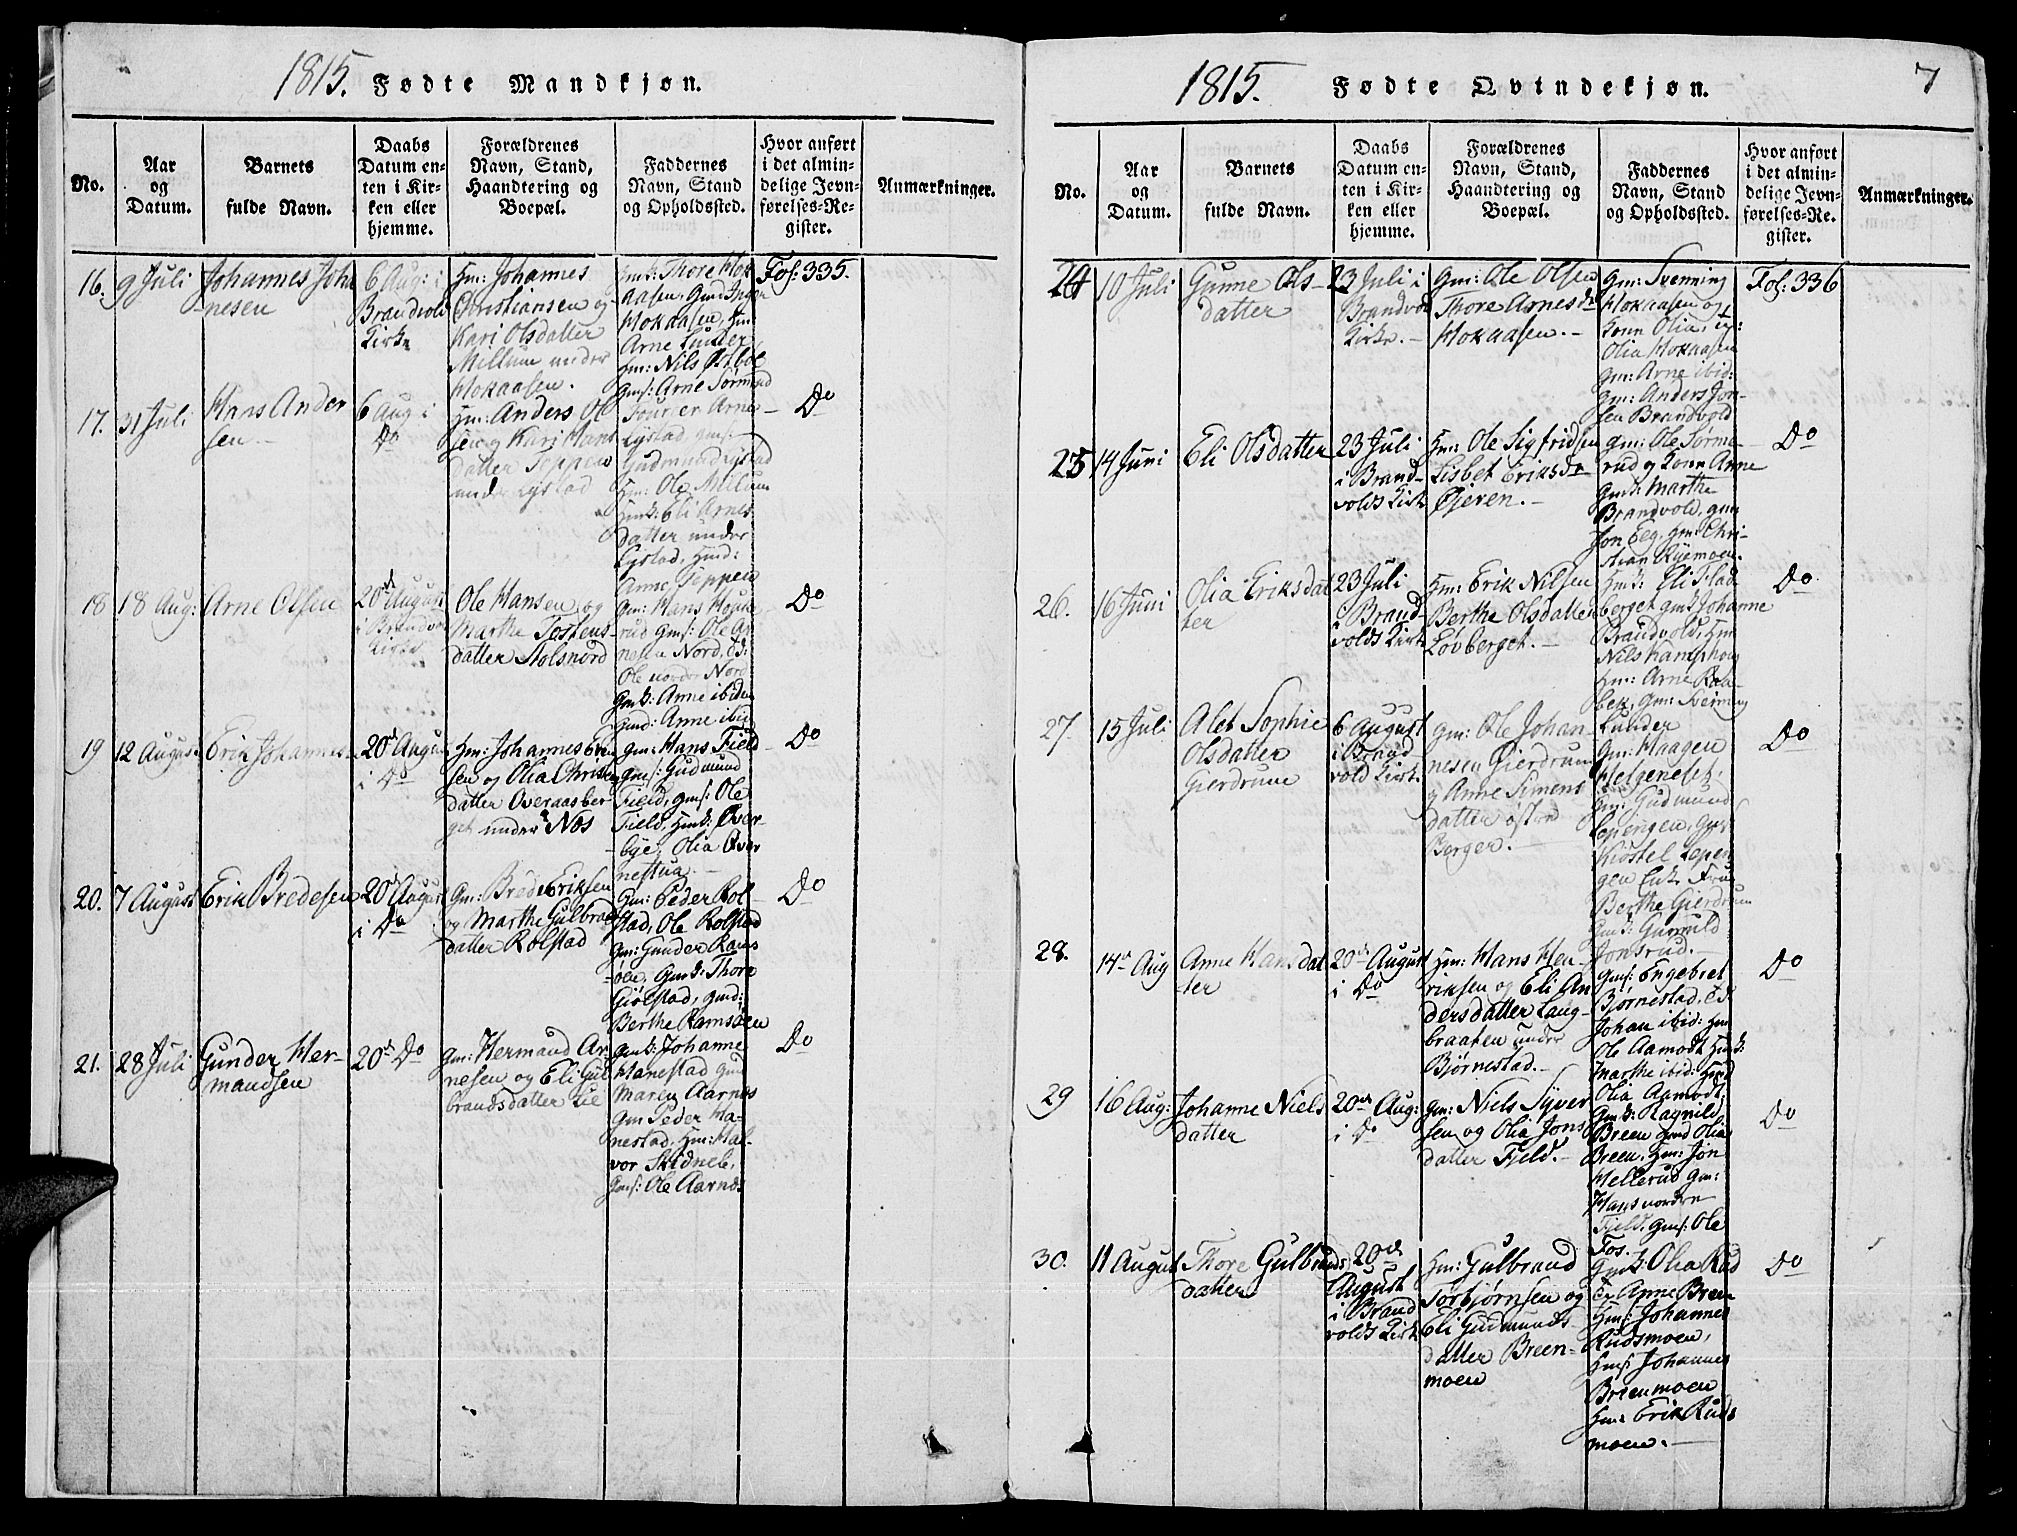 1815. Fødte Mandkjøn.
No.
Aar
og
Datum.
Barnets
fulde Navn.
Daabs
Datum en-
ten i Kir-
ken eller
hjemme.
Forældrenes
Navn, Stand,
Haandtering og
Boepæl.
Faddernes
Navn, Stand
og Opholdssted.
Hvor anført
i det almin-
delige Jevn-
førelses-Re-
gister.
Anmærkninger.
16.
9 Juli
Johannes Joha
nesen
6 Aug: i
Brandvold
Kirke
Hm: Johannes
Christiansen og
Kari Olsdatter
Millum under
Hokaasen.
Gmk: Thore Hok
aasen, Gmd Inger
Hokaasen, Hm
Arne Lunder
Hm: Nils
Gms: Arne Sørmud
Fol: 335.
17.
31 Juli
Hans Ander
sen
6 Aug i
Do
Hm: Anders Ol
sen og Kari Hans
datter Teppen
under Lystad
Arne
Lystad, gms:
Gudmund Lystad
Hm: Ole Millum
Hmk: Eli Arnes
datter under
Lystad, Hmd:
Anne Teppen
Do
18
18 Aug:
Arne Olsen
20de August
i Brandvold
Kirke
Ole Hansen og
Marthe Tostens-
datter Nolsnord
Gm: Hans
rud Gms: Ole Ar
nesen Nord,
Ole nordre Nord
Gmk: Anne ibidem
Gmd: Anne ibid
Do
19
12 August
Erik Johannes-
20de August
i Do
Hm: Johannes Erik
sen og Olia Christens
datter Overaasber
get under Næs
Gm: Hans Field
gms: Gudmund
Field, gms: Ole
Field, Hmk: Over-
bye, Olia Over
nestua.
Do
20.
7 August
Erik Bredesen
20de August
i Do
Gm: Brede Eriksen
og Marthe Gulbrands
datter Rolstad
Gm: Peder Rol
stad, Ole Rolstad
Gm: Gunder Rams
øen, Gmk: Thore
Giølstad, Gmd:
Berthe Ramsøen
Do
21.
28 Juli
Gunder Her-
mandsen
20de Do
Gm: Hermand Ar-
nesen og Eli Gul
brandsdatter Lie
Gmk: Johanne
Hanestad Gmd
Maren Aarnes
Gm Peder Ha-
nestad, Hm: Hal-
vor Skidneb,
Gms: Ole Aarnes
Do
1815. Fødte Qvindekjøn.
7
No.
Aar
og
Datum.
Barnets
fulde Navn.
Daabs
Datum en-
ten i Kir-
ken eller
hjemme.
Forældrenes
Navn, Stand,
Haandtering og
Boepæl.
Faddernes
Navn, Stand
og Opholdssted.
Hvor anført
i det almin-
delige Jevn-
førelses-Re-
gister.
Anmærkninger.
24
10 Juli
Gunne Ols-
datter
23 Juli i
Brandvold
Kirke.
Gm: Ole Olsen
Thore Arnesdr
Hokaasen.
Gm: Svenning
Hokaasen og
Konn Olia,
Olia Hokaasen
Gm: Arne ibid:
Gm: Anders Jon-
sen Brandvold
Fol: 336
25
14 Juni
Eli Olsdatter
23 Juli
i Brand-
volds Kirk
Hm: Ole Sigfridsen
Lisbet Eriksdr
Øjeren.
Gm: Ole Sørme-
rud og Konn Anne
Gmk: Marthe
Brandvold, Gm
Jon Eeg, Hm: Chri-
stian Ryemoen.
Do
26.
16 Juni
Olia Eriksdat
ter
23 Juli
i Brand-
volds Kirk
Hm: Erik Nilsen
Berthe Olsdatter
Løvberget.
Hmk: Eli Flad
berget Gmk Johanne
Brandvold, Hm
Nils Kamphoug
Hm: Arne Raa-
bek, Gm: Svenning
Lunder
Do
27.
15 Juli
Alet Sophie
Olsdatter
Gierdrum
6 August
i Brand
vold Kirk.
Gm: Ole Johan
nesen Gierdrum
og Anne Simens
datter østre
Berger.
Gm: Haagen
Helgeneset,
Gm: Gudmund
Lepengen,
Kiøstel Lepen
gen Enke Frue
Berthe Gierdrum
Gmk: Gunnild
Jonsrud.
Do
28.
14de Aug
Anne Hansdat
ter
20de August
i Do
Hm: Hans Hen
riksen og Eli An
dersdatter Laug-
braaten under
Bjørnestad.
Gms: Engebret
Bjørnestad,
Johan ibid: Hm
Ole Aamodt Hmk:
Marthe ibid: Gmd
Olia Aamodt
Do
29
16 Aug:
Johanne Niels
datter
20de Aug:
i Do
Gm: Niels Syver
sen og Olia Jons
datter Fjeld.
Gmk: Ragnild
Breen Gmd Olia
Breen, Hm: Jon
Hellerud Gm:
Hans nordre
Fjeld, Gms: Ole
Fos.
Do
30.
11 August
Thore Gulbrands
datter
20de
August
i Brand
volds Kirk
Hm: Gulbrand
Torbjørnsen og
Eli Gudmunds
datter Breen-
moen
Gmk: Olia Rud
Anne Breen
Hm: Johannes
Rudsmoen,
Hms: Johannes
Breenmoen
Hm: Erik Ruds
moen.
Do